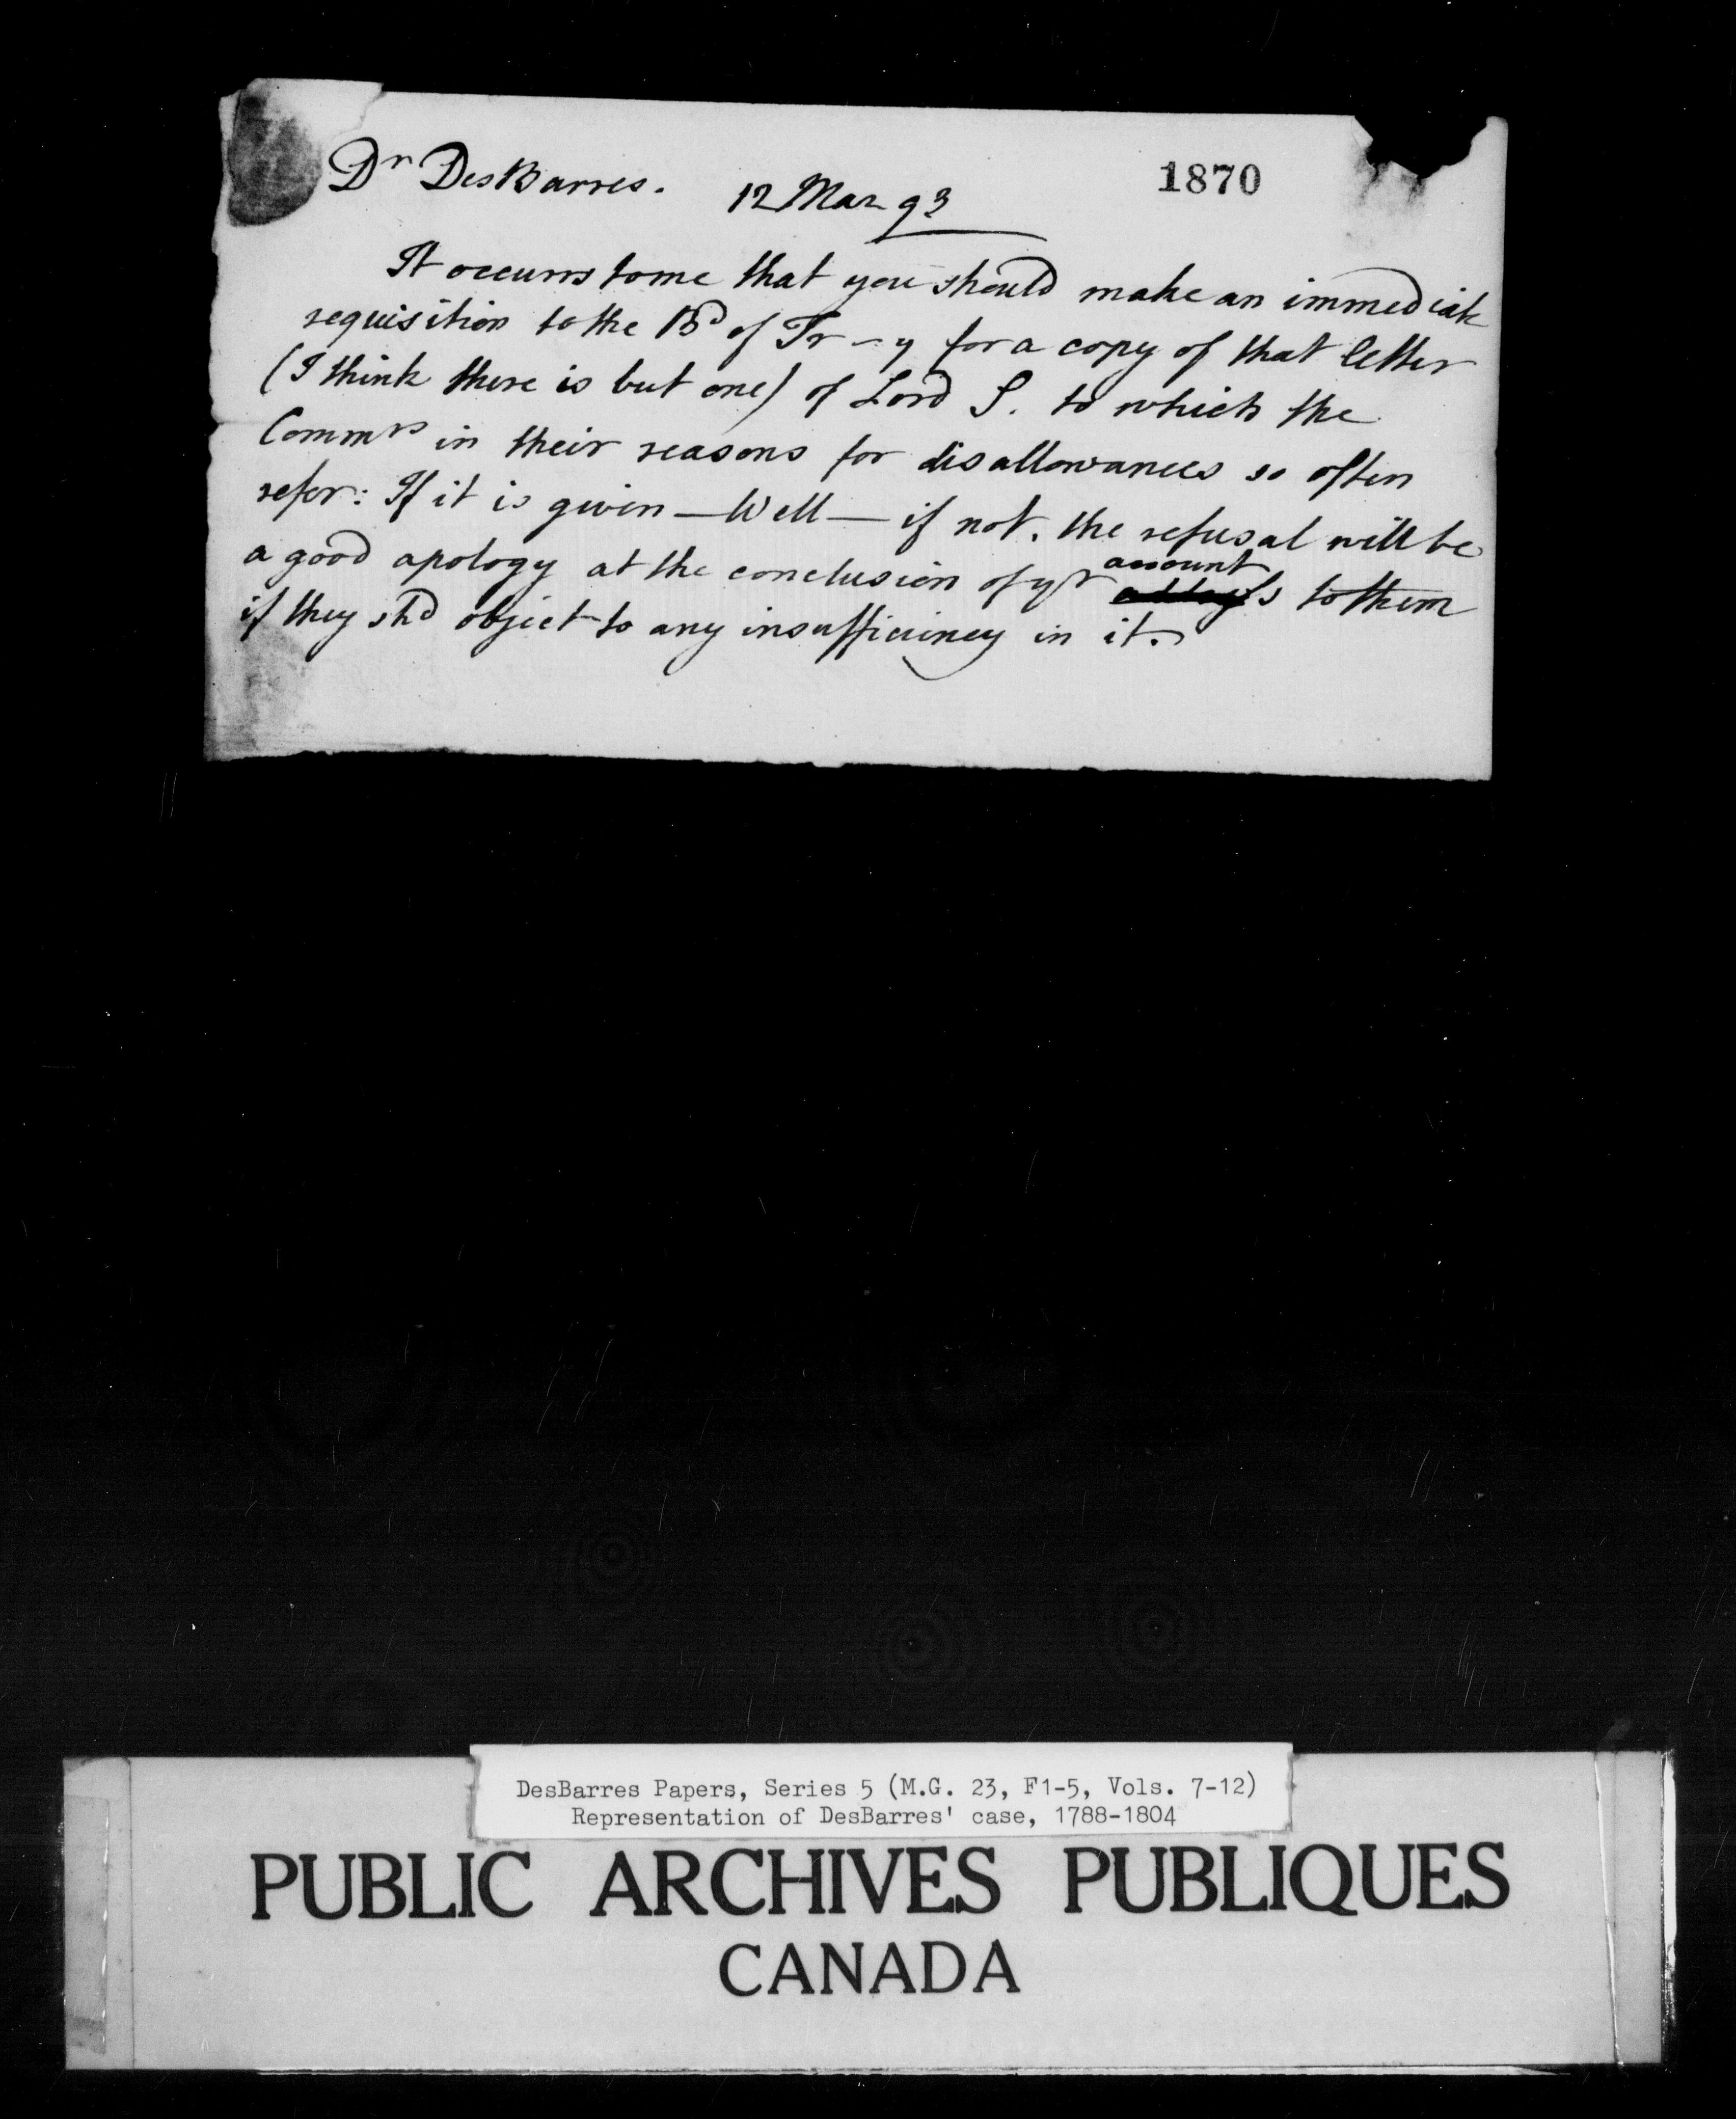 Dr DesBarres. 12 Mar 93 1870
It occurrs to me that you should make an immediate
requisition to the Bd of Tr-y for a copy of that letter
(I think there is but one) of Lord S. to which the
Commrs in their reasons for disallowances so often
refer: If it is given — Well — if not, the refusal will be
a good apology at the conclusion of yr account s to them
if they shd object to any insufficiency in it.
DesBarres Papers, Series 5 (M.G. 23, F1-5, Vols. 7-12)
Representation of DesBarres' case, 1788-1804
PUBLIC ARCHIVES PUBLIQUES
CANADA